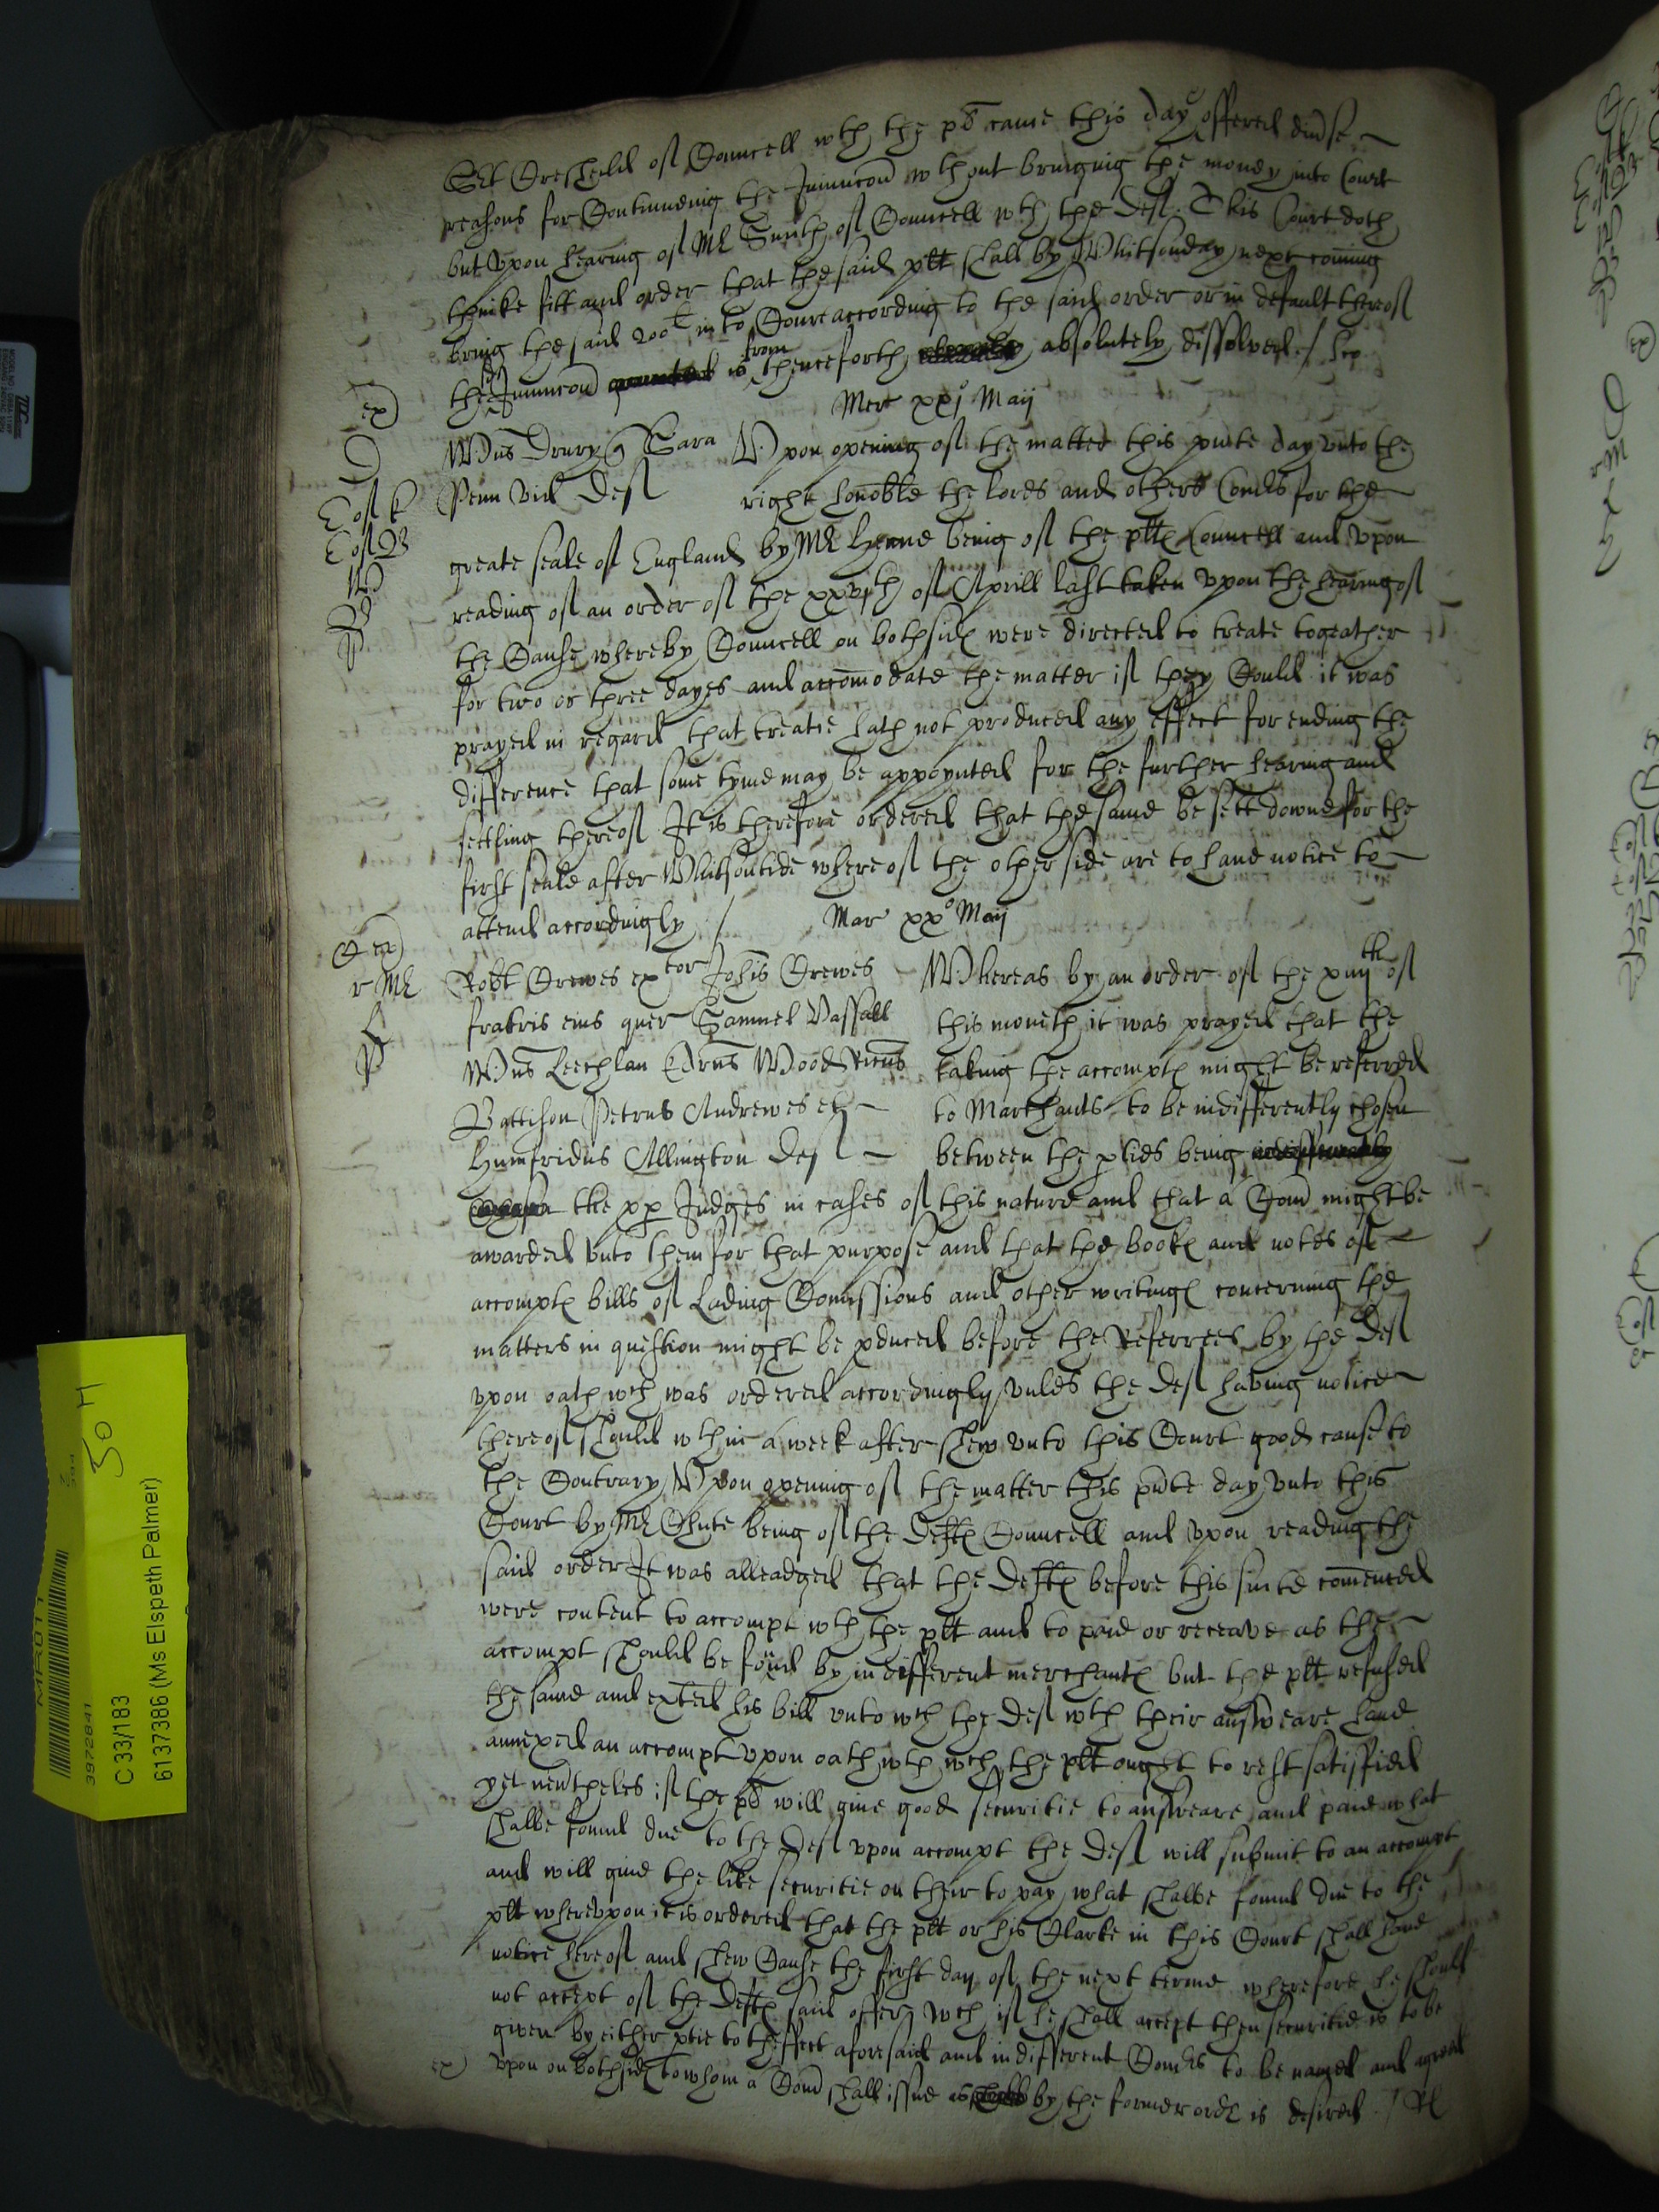 Mr Cresheld of Councell wth the pls came this day offered divse
reasons for Continueing the Iniuncon wthout bringing the money into Court
but vpon hearing of Mr Smith of Councell wth the Def. This Court doth
thinke fitt and order that the said plt shall by Whitsonday next coming
bring the said 200l into Court according to the said order or in default thereof
the sd Iniuncon is from thenceforth absolutely dissolved /
Mer xxjo Maij
Wms Drury q Sara Vpon opening of the matter this pnte day vnto the
Penn vid Def right honoble the lords and others Comrs for the
greate seale of England by Mr Hearne being of the plts Councell and vpon
reading of an order of the xxvjth of Aprill last taken vpon the hearing of
the Cause whereby Councell on bothsids were directed to treate togeather
for two or three dayes and accomodate the matter if they Could it was
prayed in regard that treatie hath not produced any effect for ending the
difference that some tyme may be appoynted for the further hearing and
settling thereof It is therefore ordered that the same be sett downe for the
first seale after Whitsontide whereof the other side are to haue notice to
attend accordingly /
Mar xxo Maij
Robt Crewes exetor Johis Crewes Whereas by an order of the xiijth of
fratris eius quer Samuel Vassall this moneth it was prayed that the
Wms Leechlan Edrus Wood Ricus taking the accompts might be referred
Battison Petrus Andrewes et to Marchants to be indifferently chosen
Humfridus Allington Def between the pties being
the pp Judges in cases of this nature and that a Com might be
awarded vnto them for that purpose and that the books and notes of
accompts bills of Lading Comissions and other writings concerning the
matters in question might be pduced before the Referrees by the Def
vpon oath wch was ordered accordingly vnles the Def having notice
thereof should wthin a week after shew vnto this Court good cause to
the Contrary Vpon opening of the matter this pnte day vnto this
Court by Mr Chute being of the Defts Councell and vpon reading the
said order It was alleadged that the Defts before this suite comenced
were content to accompt wth the plt and to paie or receave as the
accompt should be found by indifferent merchants but the plt refused
the same and exted his bill vnto wch the Def wth their answeare haue
annexed an accompt vpon oath wth wch the plt ought to rest satisfied
yet neutheles if the pls will giue good securitie to answeare and paie what
shalbe found due to the Def vpon accompt the Def will submit to an accompt
and will giue the like securitie on their to pay what shalbe found due to the
plt wherevpon it is ordered that the plt or his Clarke in this Court shall haue
notice hereof and shew Cause the first day of the next terme wherefore he should
not accept of the Defts said offer wch if he shall accept then securitie is to be
given by either ptie to theffect aforesaid and indifferent Comrs to be named and agreed
vpon on bothsids to whom a Com shall issue as by the former order is desired /
C 33/183
6137386 (Ms Elspeth Palmer)
3972841
50 H